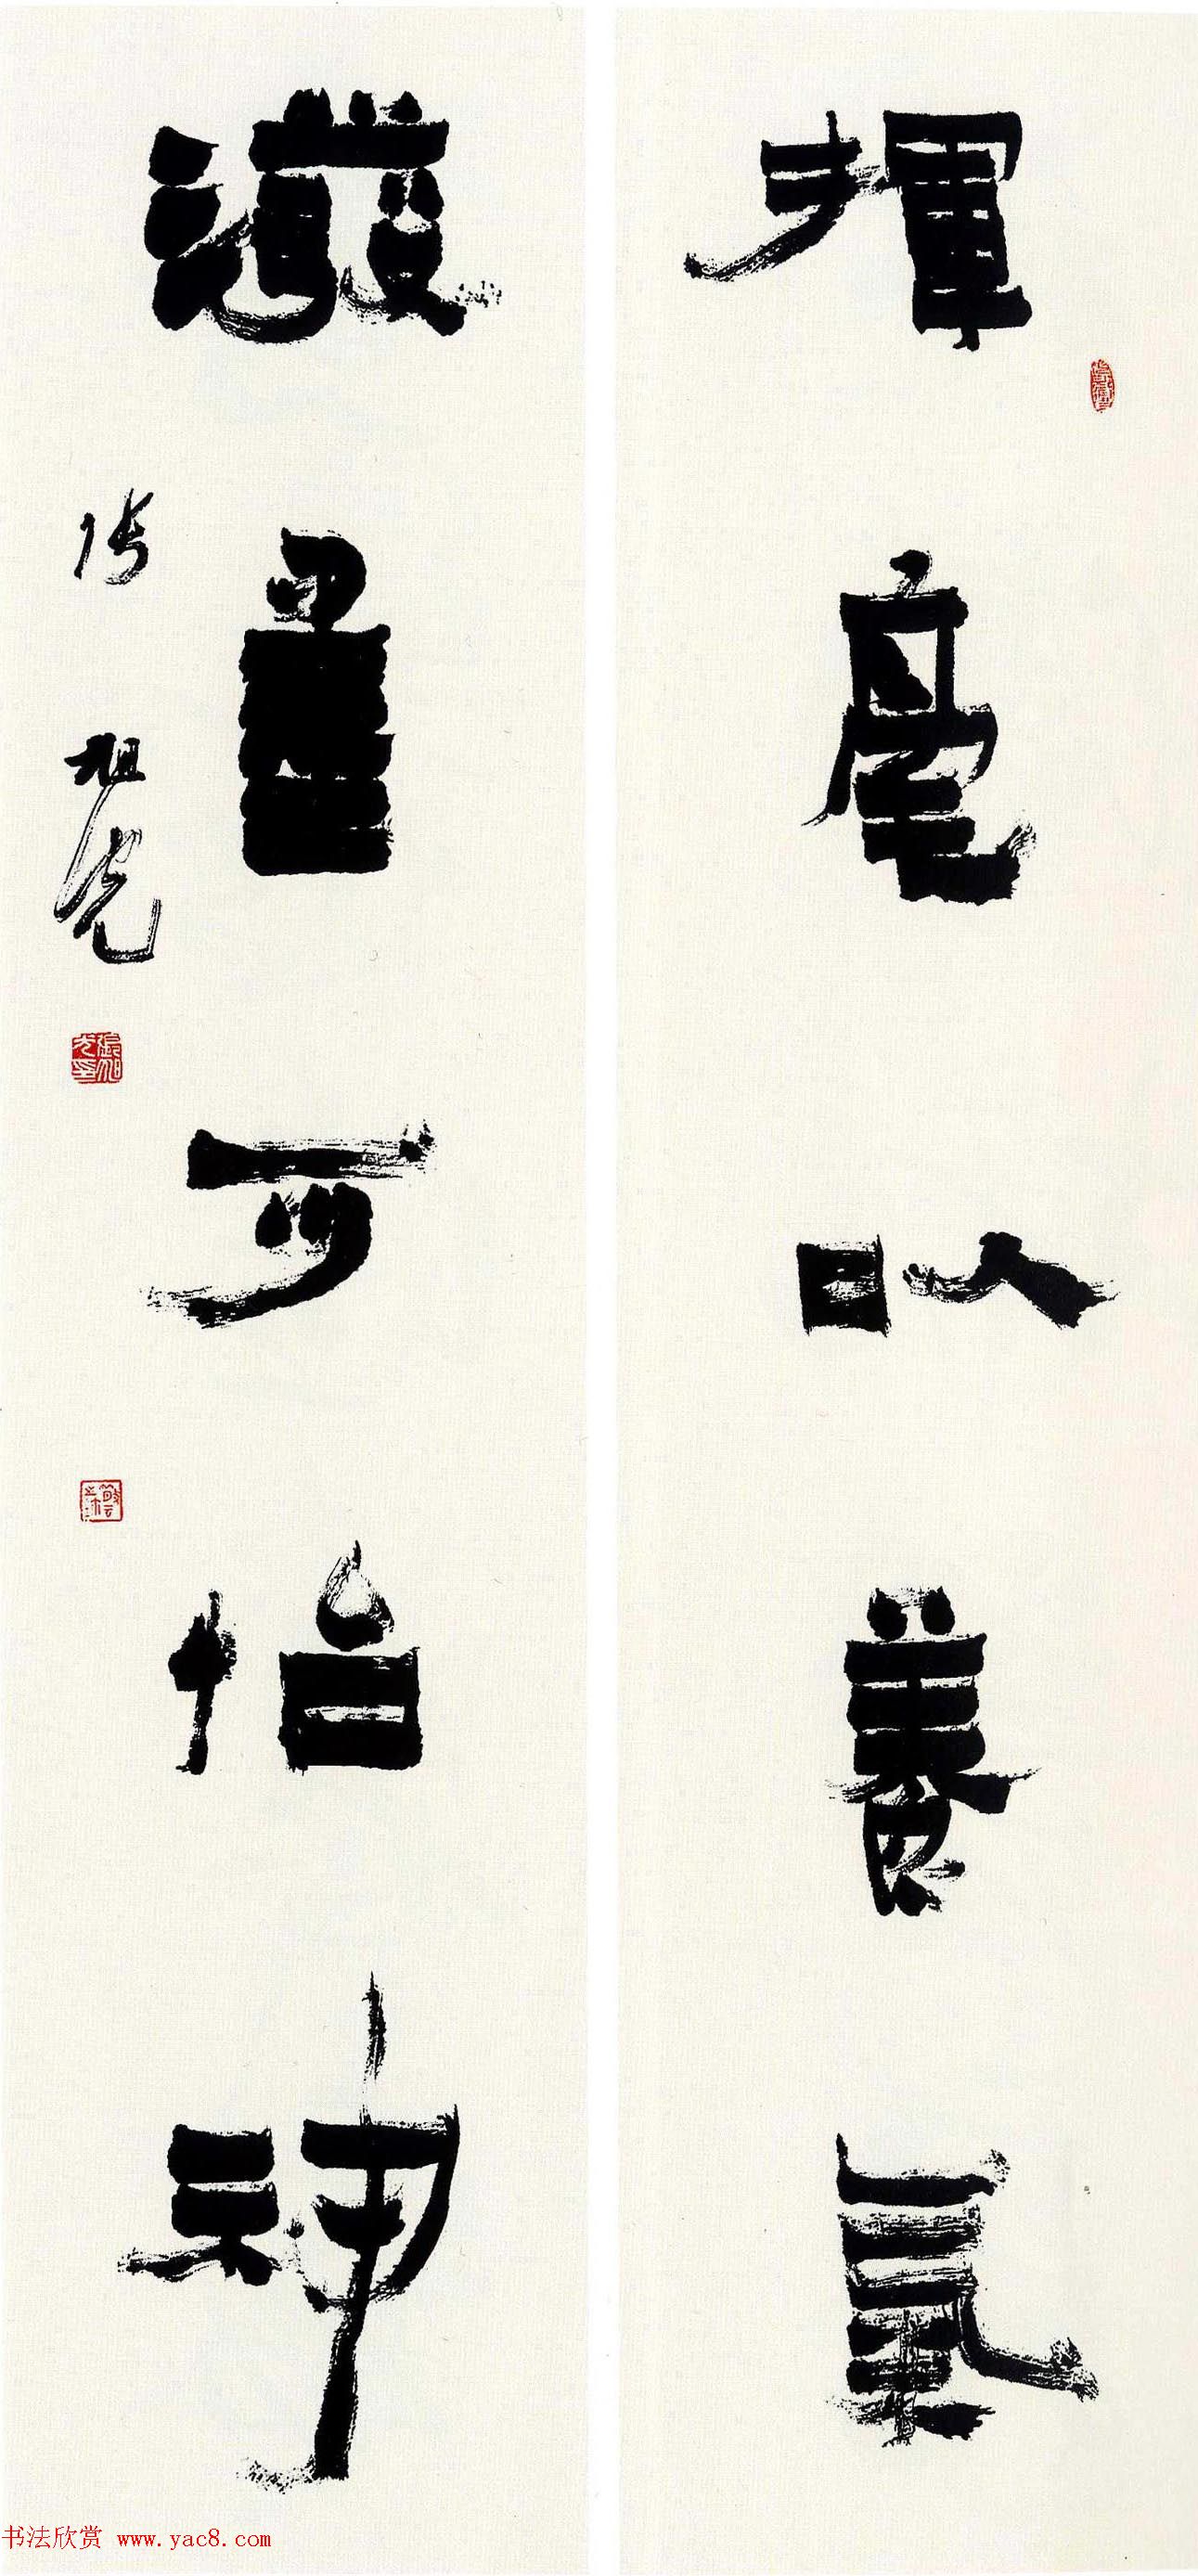 揮毫以養氣
潑墨可怡神
張旭光
书法欣赏 www.yac8.com